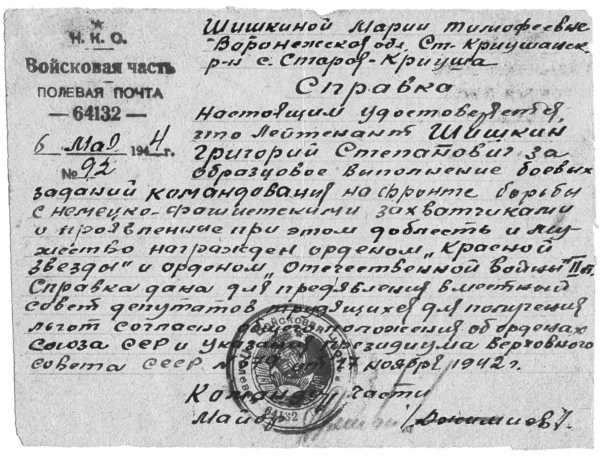 Н. К. О.
Войсковая часть
ПОЛЕВАЯ ПОЧТА
— 64132 —
6 мая 1944 г.
№ 92
Шишкиной Марии Тимофеевне
Воронежской обл. Ст-Криушанск.
р-н с. Старо-Криуша
Справка
Настоящим удостоверяется,
что Лейтенант Шишкин
Григорий Степанович за
образцовое выполнение боевых
заданий командования на фронте борьбы
с немецко-фашистскими захватчиками
и проявленные при этом доблесть и му-
жество награжден орденом „Красной
Звезды" и орденом „Отечественной Войны" II ст.
Справка дана для предявления в местный
совет депутатов трудящихся для получения
льгот согласно положения об орденах
Союза ССР и указания президиума Верховного
совета СССР от 17 ноября 1942 г.
Командир части
Майор
64132